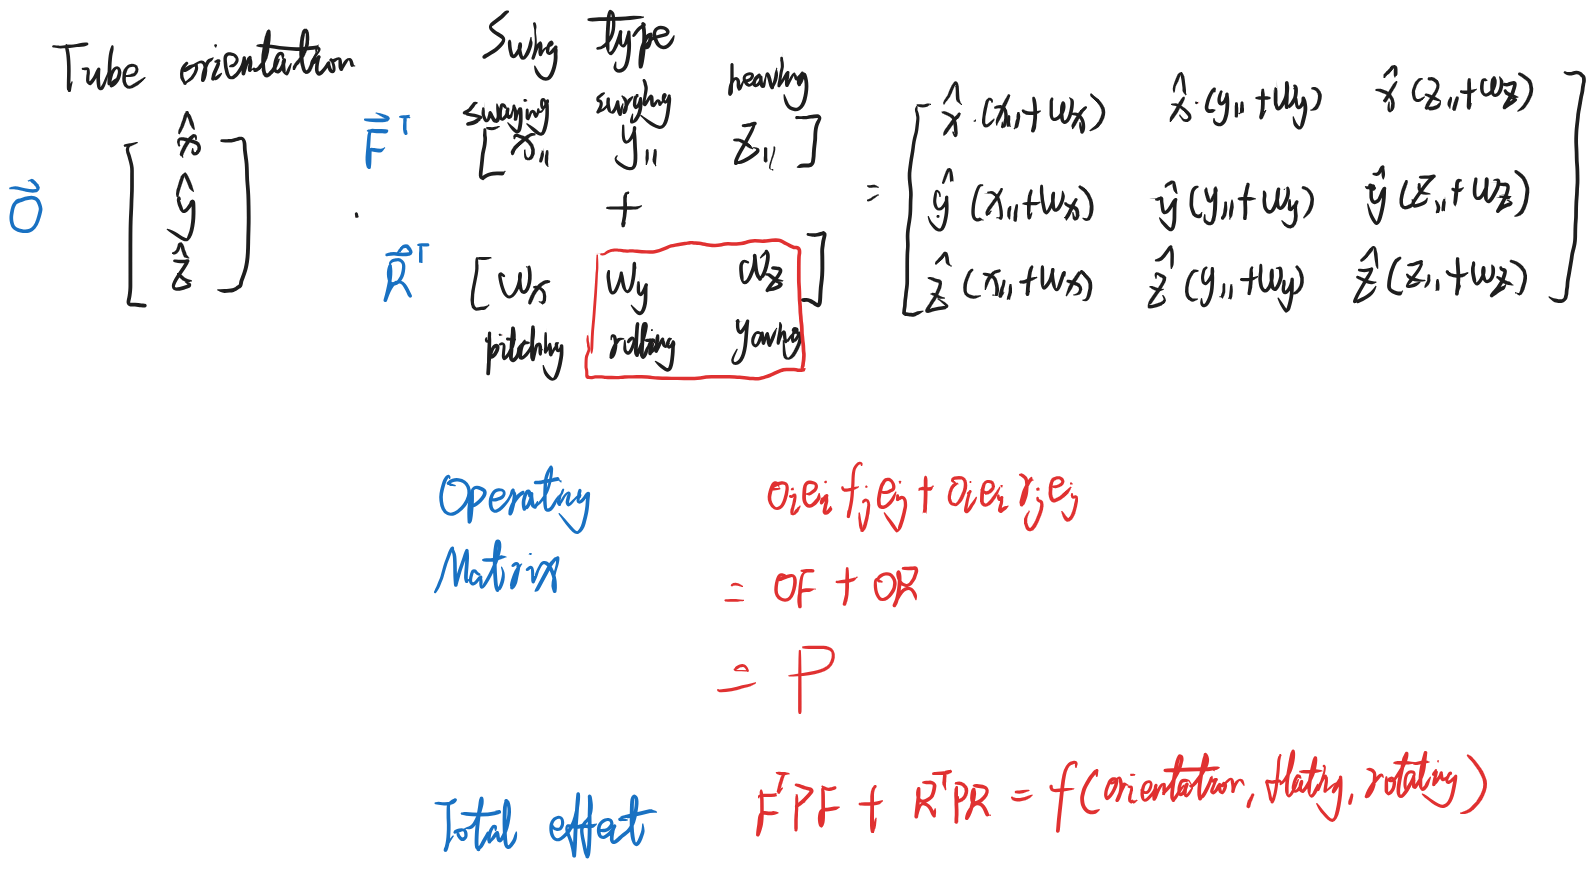 Tube orientation
Swing type
swaying surging heaving
O⃗ [x̂ ŷ ẑ] · F⃗ᵀ [x,, y,, z,,]
+
R⃗ᵀ [ωx ωy ωz]
pitching rolling yawing
= [x̂·(x,,+ωx) x̂·(y,,+ωy) x̂(z,,+ωz)
ŷ(x,,+ωx) ŷ(y,,+ωy) ŷ(z,,+ωz)
ẑ(x,,+ωx) ẑ(y,,+ωy) ẑ(z,,+ωz)]
Operating
Matrix
oᵢeᵢfⱼeⱼ + oᵢeᵢrⱼeⱼ
= OF + OR
= P
Total effect
FᵀPF + RᵀPR = f(orientation, flating, rotating)